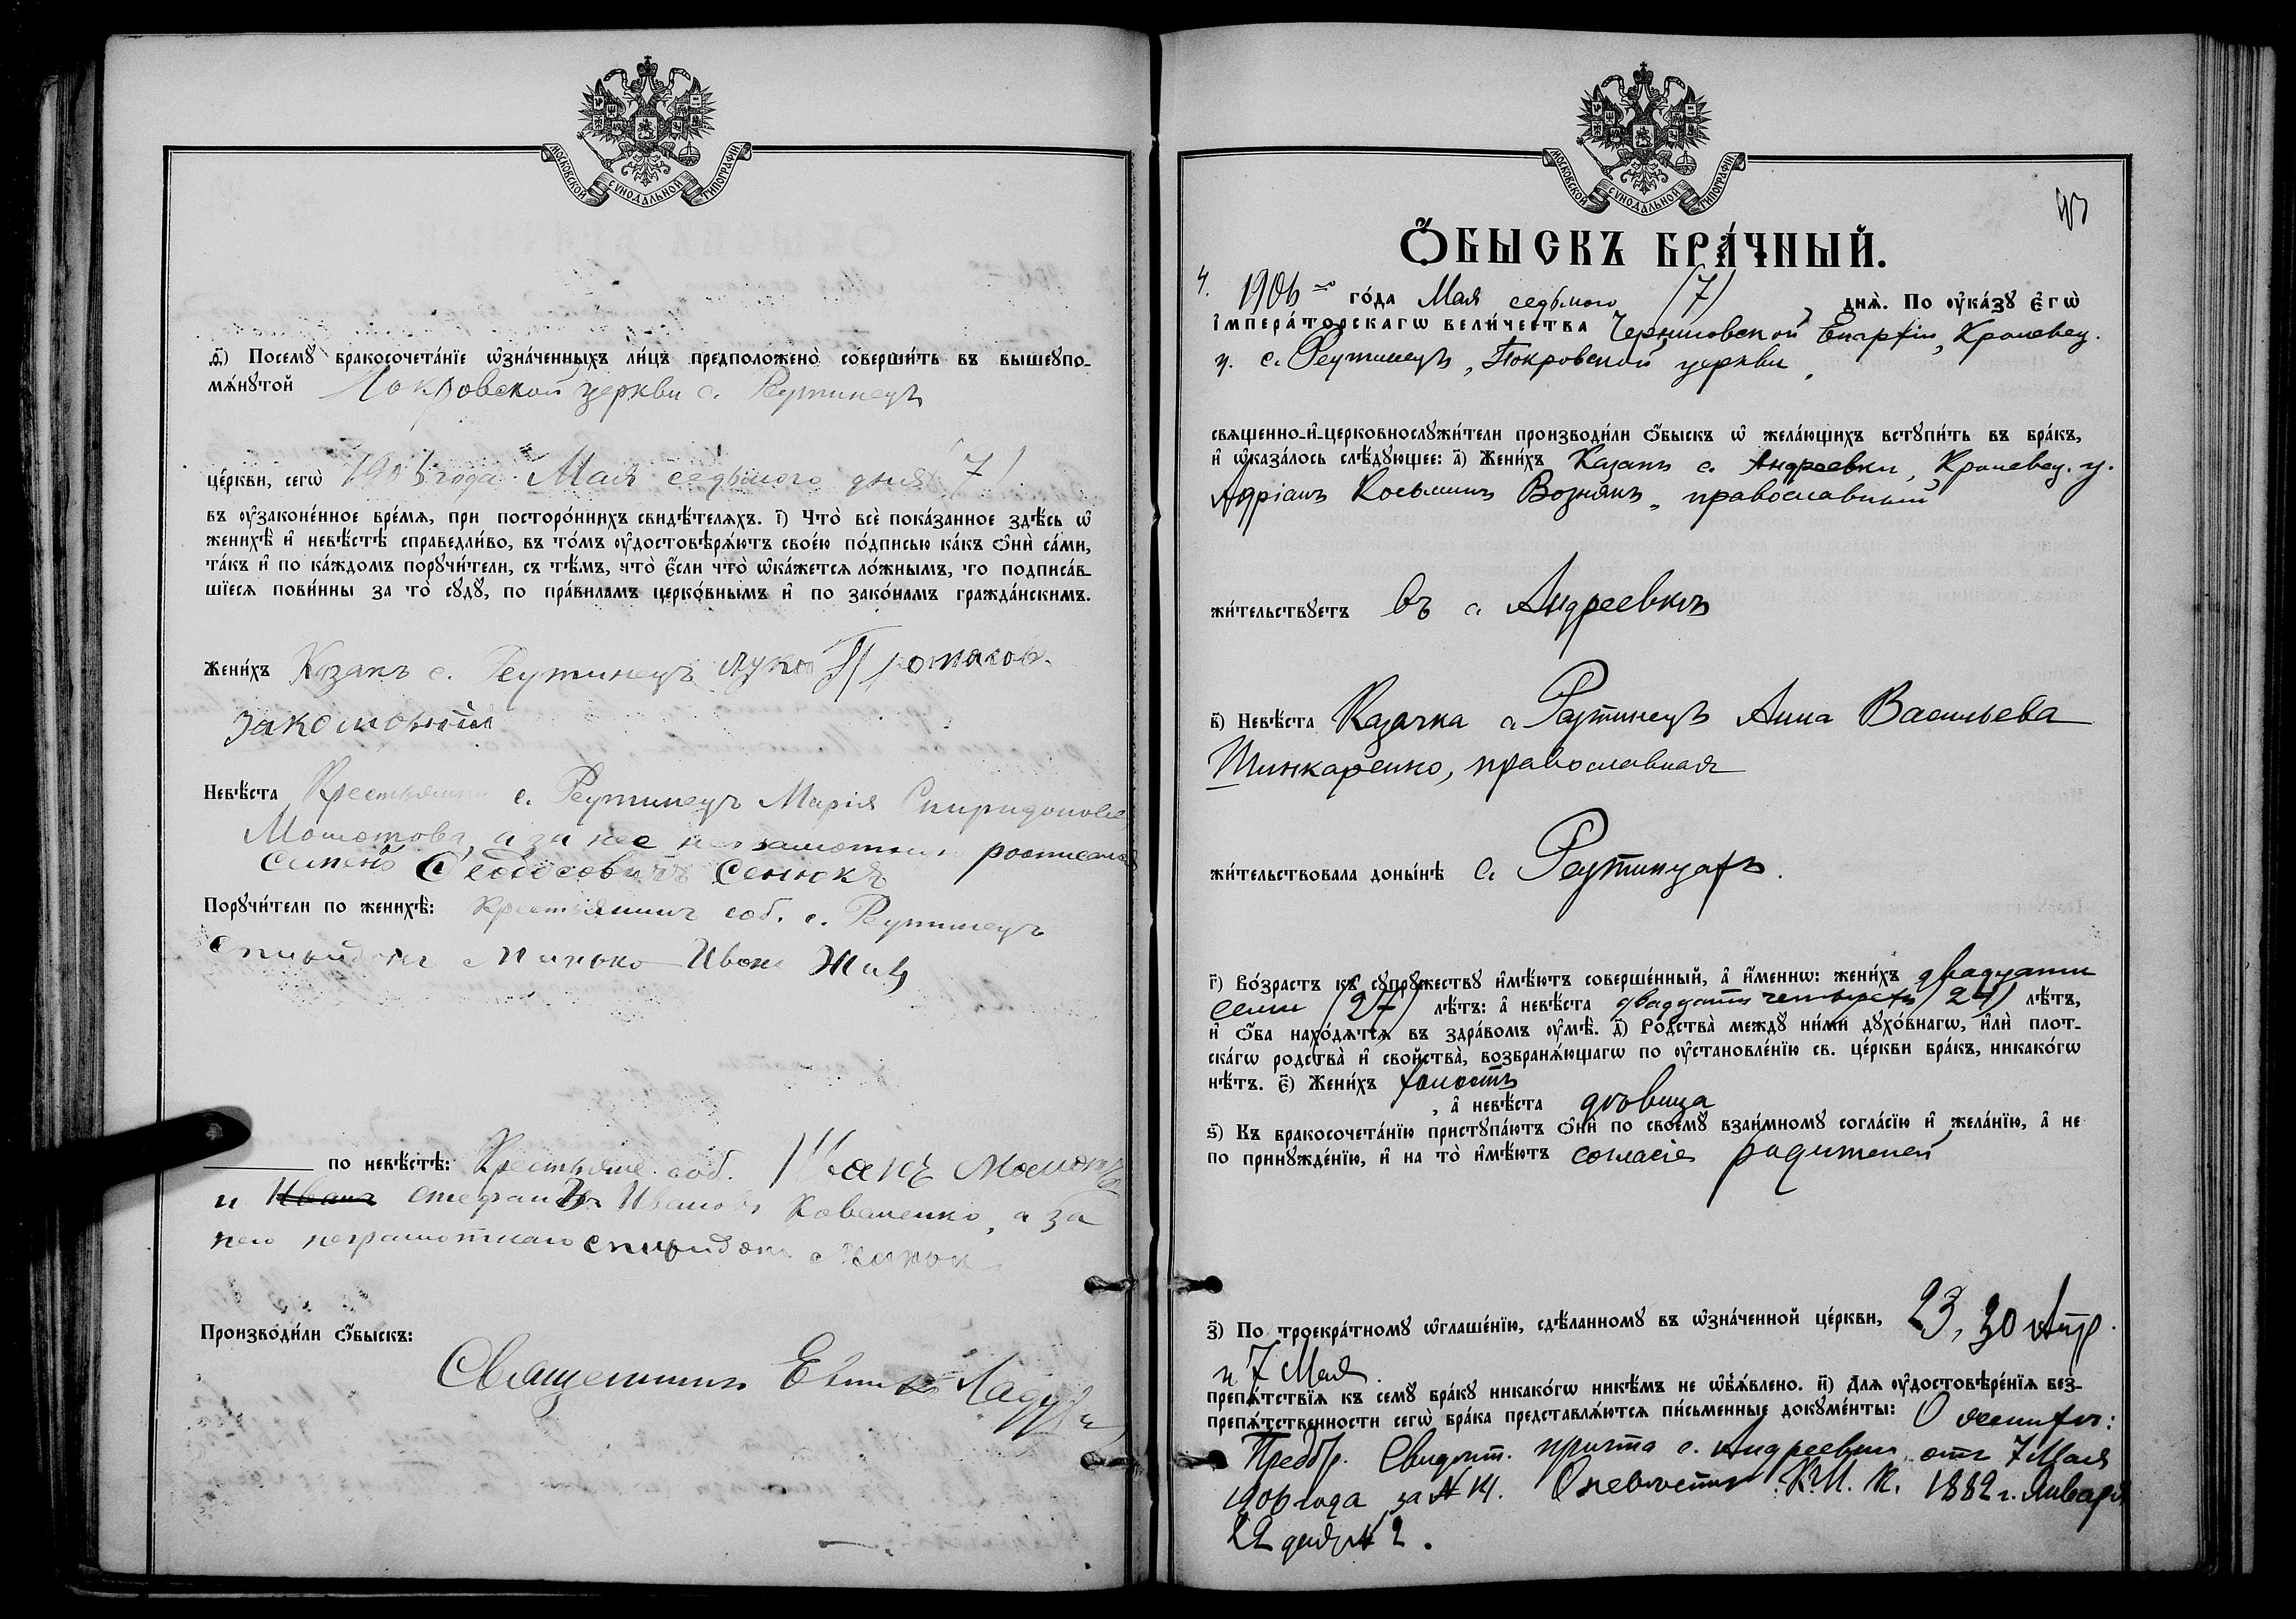 МОСКОВСКОЙ СѴНОДАЛЬНОЙ ТИПОГРАФІИ
д҃) Посемꙋ̀ бракосочета́нїе ѡ҆зна́ченныхъ ли́цъ предположено̀ соверши́ть въ вышеꙋпо-
мѧ́нꙋтой Покровской церкви с. Реутинецъ
це́ркви, сегѡ̀ 1906 года Мая седьмого дня /7/
въ ᲂу҆законе́нное вре́мѧ, при посторо́ннихъ свидѣ́телѧхъ. і҃) Что̀ всѐ пока́занное здѣ́сь ѡ҆
женихѣ̀ и҆ невѣ́стѣ справедли́во, въ то́мъ ᲂу҆достовѣрѧ́ютъ свое́ю по́дписью ка́къ ѻ҆нѝ са́ми,
та́къ и҆ по ка́ждомъ порꙋчи́тели, съ тѣ́мъ, что̀ є҆́сли что̀ ѡ҆ка́жетсѧ ло́жнымъ, то подписа́в-
шїесѧ пови́нны за то̀ сꙋдꙋ̀, по пра́виламъ церко́внымъ и҆ по зако́намъ гражда́нскимъ.
Жени́хъ Козакъ с. Реутинецъ Лука
Невѣ́ста Крестьянка с. Реутинецъ Марія Спиридонова
а за нее неграмотную росписался
Семенъ Сенюкъ
Порꙋчи́тели по женихѣ̀: Крестьянинъ соб. с. Реутинецъ
Спиридонъ Минько Иванъ
по невѣ́стѣ: Крестьяне соб. Иванъ
и Иванъ Стефанъ Ивановъ Коваленко, а за
него неграмотнаго Спиридонъ
Производи́ли ѻ҆́быскъ:
Священникъ
МОСКОВСКОЙ СѴНОДАЛЬНОЙ ТИПОГРАФІИ
Ѻ҆́БЫСКЪ БРА́ЧНЫЙ.
4. 1906 го́да Мая седьмого /7/ днѧ̀. По ᲂу҆ка́зꙋ є҆гѡ̀
і҆мпера́торскагѡ вели́чества Черниговской Епархіи, Кролевец.
у. с. Реутинецъ, Покровской церкви,
свѧщенно-и҆-церковнослꙋжи́тели производи́ли ѻ҆́быскъ ѡ҆ жела́ющихъ встꙋпи́ть въ бра́къ,
и҆ ѡ҆каза́лось слѣ́дꙋющее: а҃) Жени́хъ Казакъ с. Андреевки, Кролевец. у.
Адріанъ Косьминъ Вознякъ, православный
жи́тельствꙋетъ въ с. Андреевкѣ
в҃) Невѣ́ста Казачка с. Реутинецъ Анна Васильева
Шинкаренко, православная
жи́тельствовала доны́нѣ с. Реутинцахъ.
г҃) Во́зрастъ къ сꙋпрꙋ́жествꙋ и҆мѣ́ютъ соверше́нный, а҆ и҆́менно: жени́хъ двадцати
семи /27/ лѣ́тъ: а҆ невѣ́ста двадцати четырехъ /24/ лѣ́тъ,
и҆ ѻ҆́ба нахо́дѧтсѧ въ здра́вомъ ᲂу҆мѣ̀. д҃) Ро́дства̀ междꙋ̀ ни́ми дꙋхо́внагѡ, и҆лѝ пло́т-
ска́гѡ родства̀ и҆ свойства̀, возбранѧ́ющагѡ по ᲂу҆становле́нїю св. це́ркви бра́къ, никако́гѡ
нѣ́тъ. є҃) Жени́хъ холостъ
, а҆ невѣ́ста дѣвица
ѕ҃) Къ бракосочета́нїю пристꙋпа́ютъ ѻ҆нѝ по своемꙋ̀ взаи́мномꙋ согла́сїю и҆ жела́нїю, а҆ не
по принꙋжде́нїю, и҆ на то̀ и҆мѣ́ютъ согласіе родителей
з҃) По троекра́тномꙋ ѡ҆глаше́нїю, сдѣ́ланномꙋ въ ѡ҆зна́ченной це́ркви, 23, 30 Апр.
и 7 Мая.
препѧ́тствїѧ къ семꙋ̀ бра́кꙋ никако́гѡ никѣ́мъ не ѡ҆б̾ѧ́влено. и҃) Длѧ ᲂу҆достовѣре́нїѧ без-
препѧ́тственности сегѡ̀ бра́ка представлѧ́ютсѧ пи́сьменные докꙋме́нты: О женихѣ:
Предбр. Свидѣт. причта с. Андреевки отъ 7 Мая
1906 года за № 14. О невѣстѣ К.М.К. 1882 г. Января
22 дня № 2.